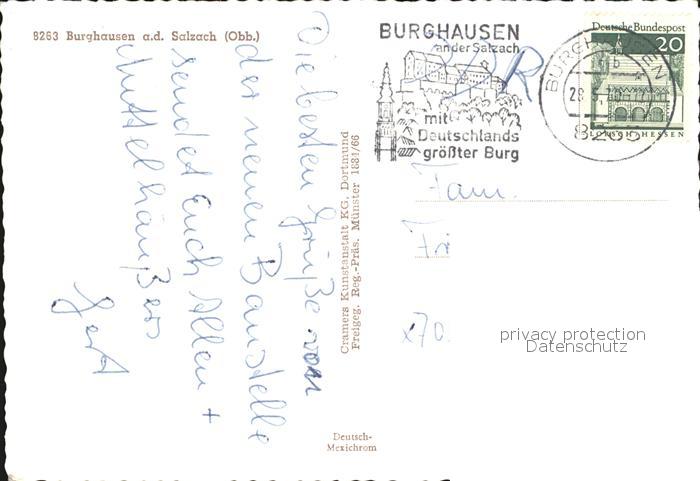 8263 Burghausen a.d. Salzach (Obb.)
Die besten Grüße von
der neuen Baustelle
sendet Euch Allen +
Gert
Cramers Kunstanstalt KG. Dortmund
Freigeg. Reg.-Präs. Münster 1831/66
Deutsch-
Mexichrom
BURGHAUSEN
an der Salzach
mit
Deutschlands
größter Burg
BURGHAUSEN
b
8263
Deutsche Bundespost
20
LORSCH/HESSEN
Fam.
privacy protection
Datenschutz